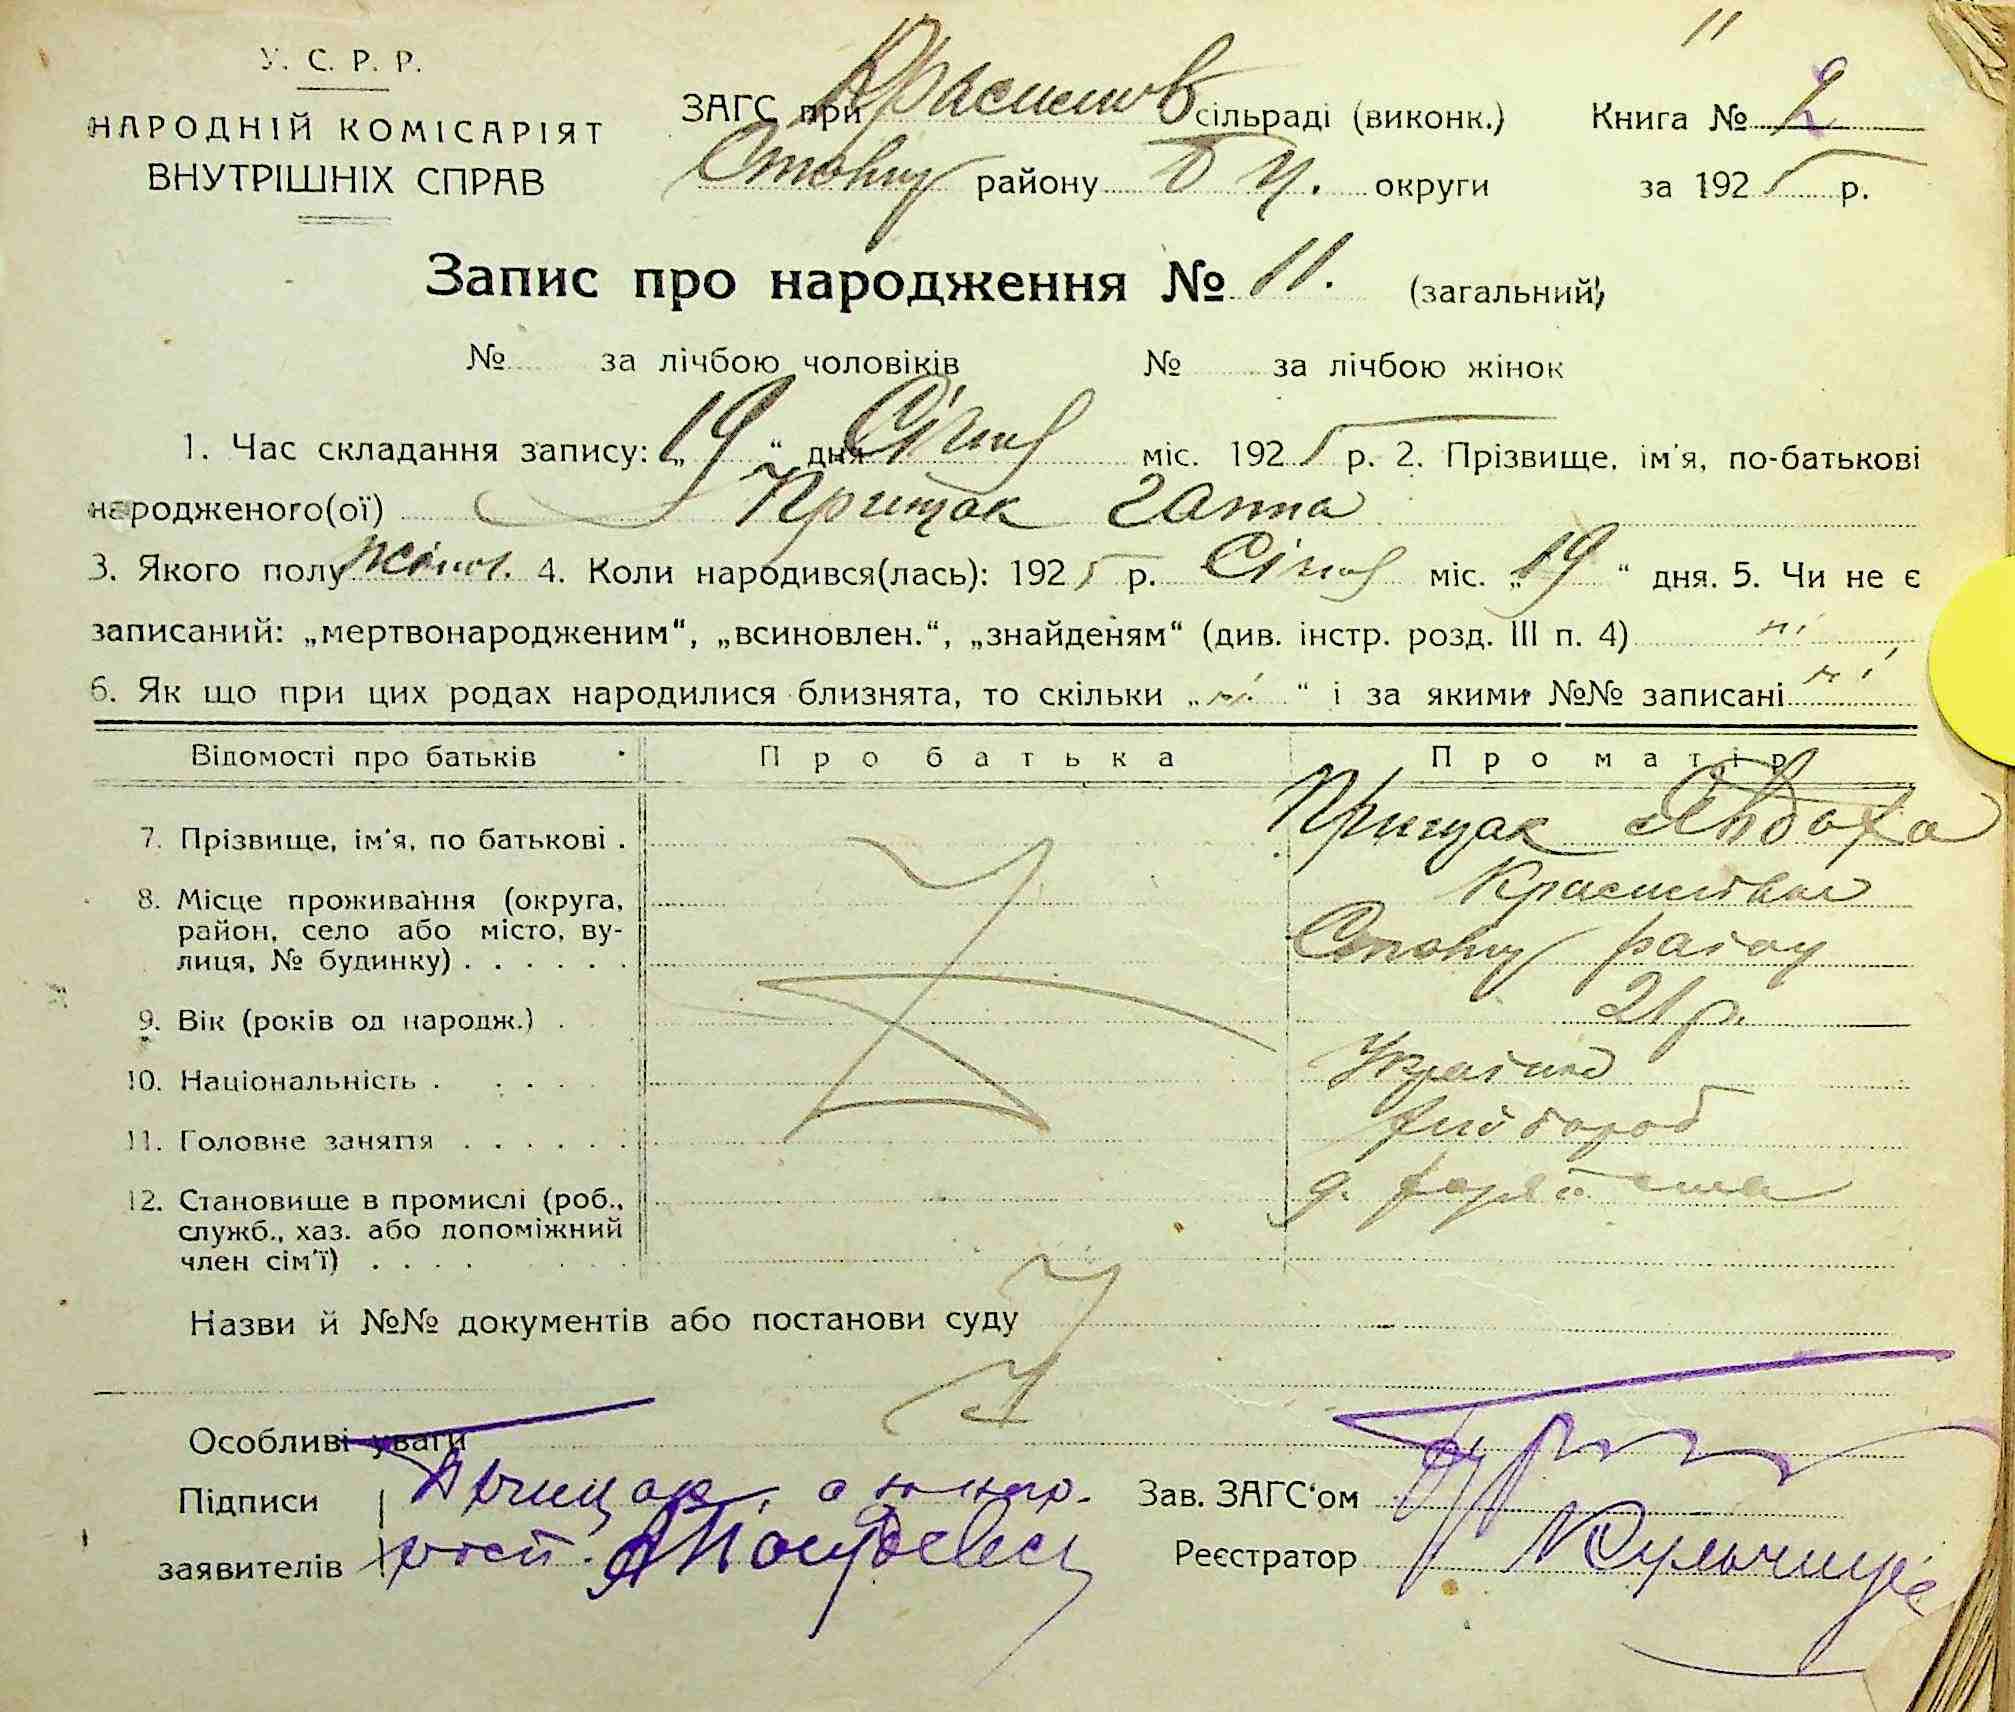 11
У. С. Р. Р.
НАРОДНІЙ КОМІСАРІЯТ
ВНУТРІШНІХ СПРАВ
ЗАГС при Красилов сільраді (виконк.) Книга № 2
району округи за 1925 р.
Запис про народження № 11. (загальний)
№ за лічбою чоловіків № за лічбою жінок
1. Час складання запису: „19“ дня Січня міс. 1925 р. 2. Прізвище, ім'я, по-батькові
народженого(ої) Прищак Ганна
3. Якого полу жіноч. 4. Коли народився(лась): 1925 р. Січня міс. „19“ дня. 5. Чи не є
записаний: „мертвонародженим“, „всиновлен.“, „знайденям“ (див. інстр. розд. III п. 4) ні
6. Як що при цих родах народилися близнята, то скільки „ні“ і за якими №№ записані ні
Відомості про батьків Про батька Про матір
7. Прізвище, ім'я, по батькові . Прищак Явдоха
8. Місце проживання (округа,
район, село або місто, ву-
лиця, № будинку) . . . . . . району
9. Вік (років од народж.) . 21 р.
10. Національність . . . . . Україн
11. Головне заняття . . . . . .
12. Становище в промислі (роб.,
служб., хаз. або допоміжний
член сім'ї) . . . .
Назви й №№ документів або постанови суду
Особливі уваги
Підписи Зав. ЗАГС'ом
заявителів Реєстратор